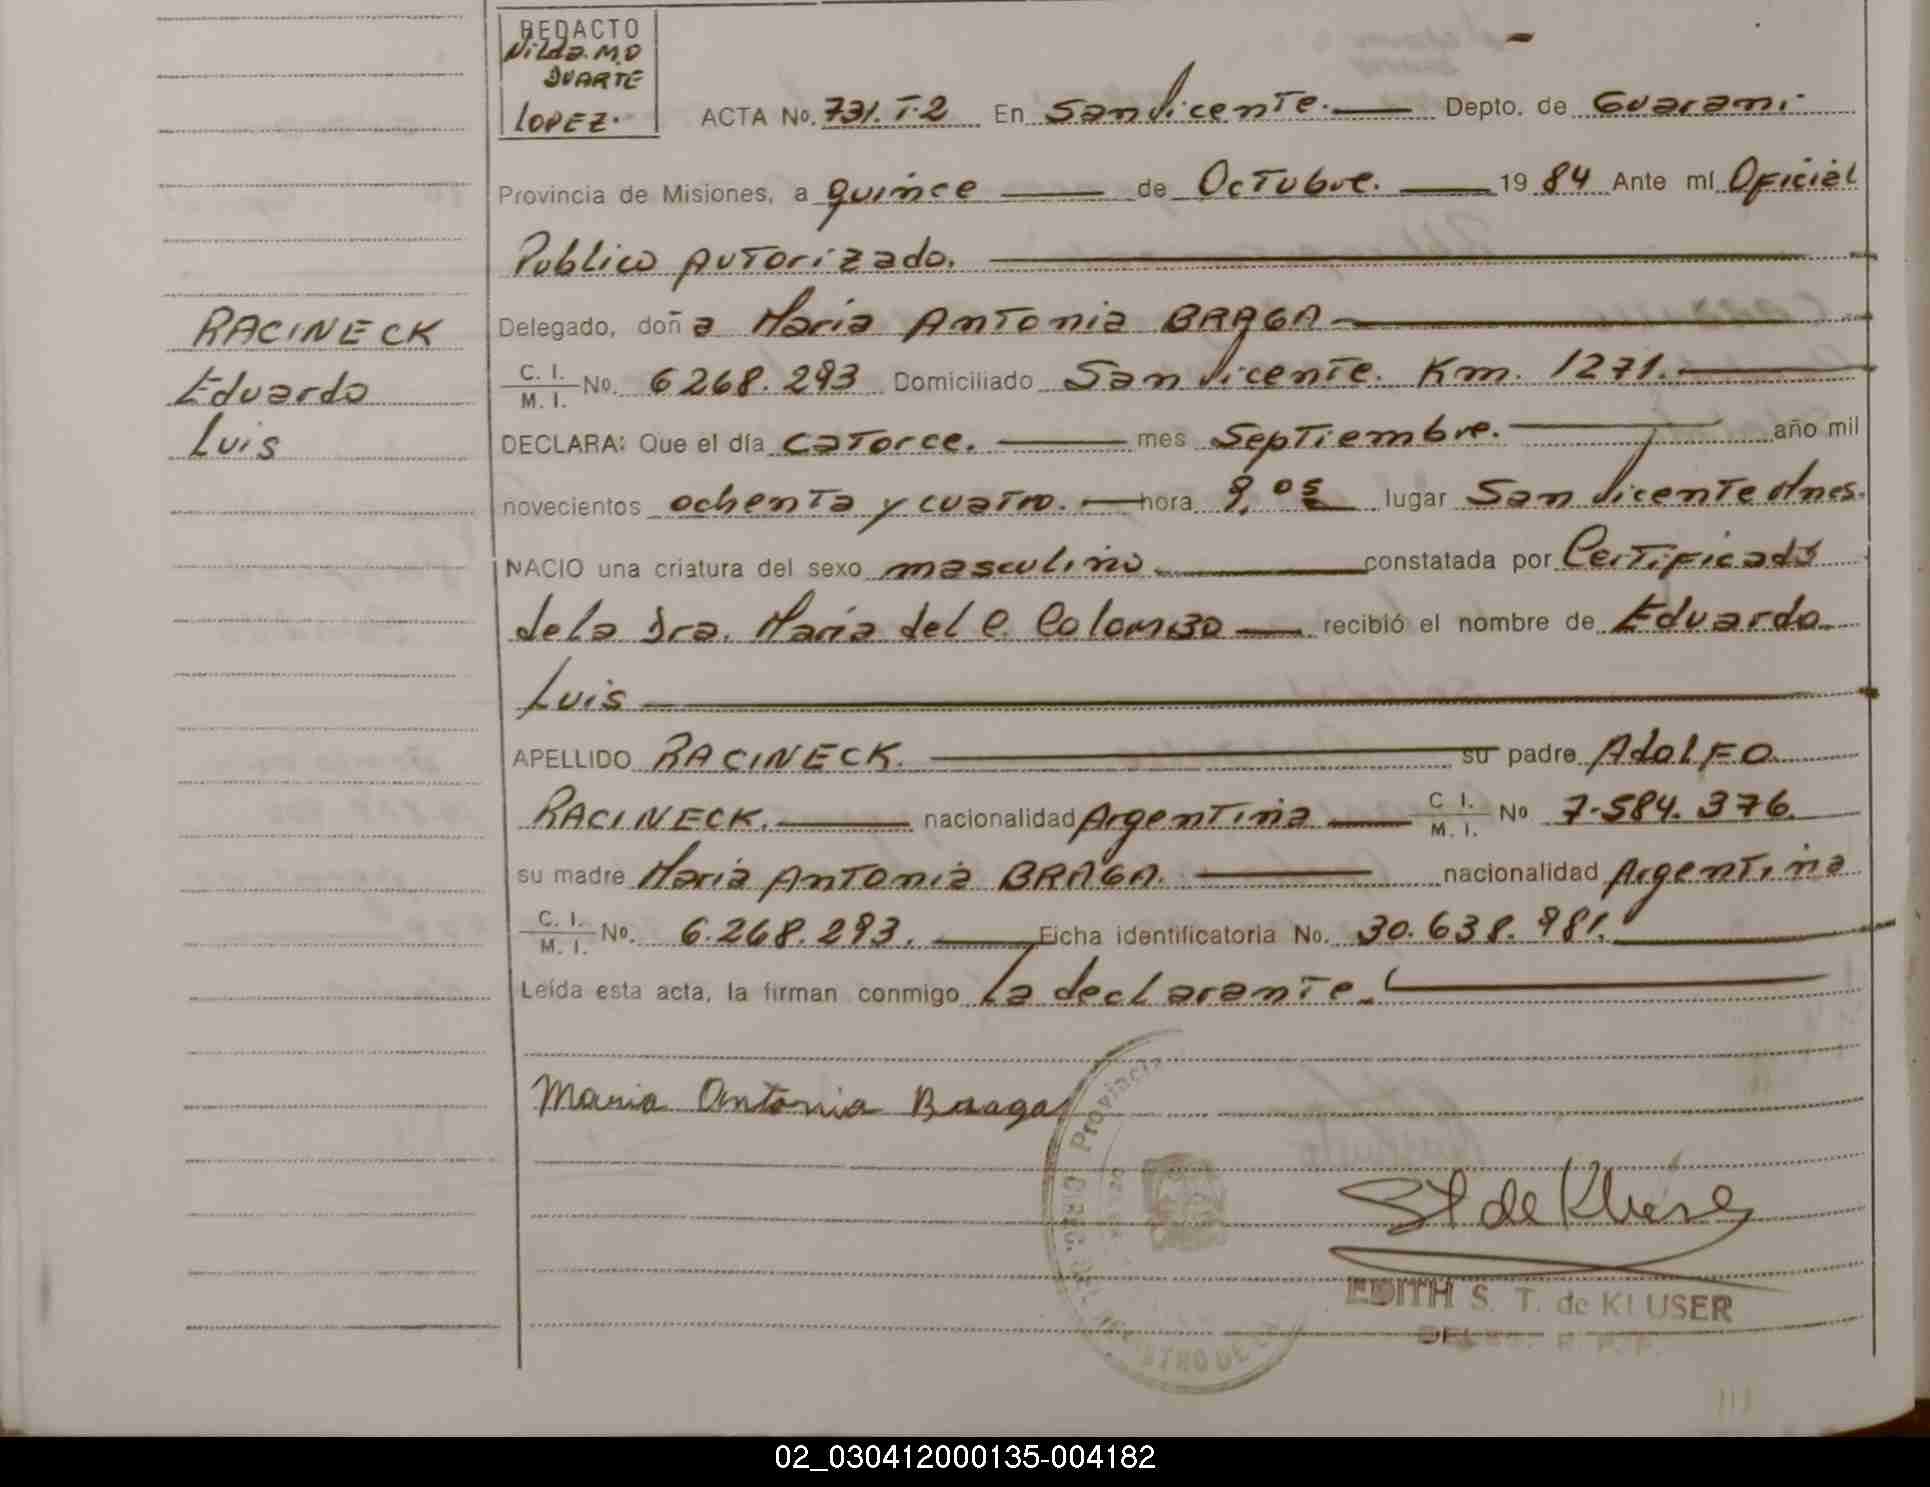 REDACTO
Nilda. M.D
DUARTE
LOPEZ.
ACTA No. 731. T.2 En San Vicente. Depto. de Guarani.
Provincia de Misiones, a quince de Octubre. 19 84 Ante mí Oficial
Publico Autorizado.
RACINECK
Eduardo
Luis
Delegado, doña Maria Antonia BRAGA
C. I.
M. I. No. 6268.293 Domiciliado San Vicente. Km. 1271.
DECLARA: Que el día catorce. mes Septiembre. año mil
novecientos ochenta y cuatro. hora 9,05 lugar San Vicente Mnes.
NACIO una criatura del sexo masculino. constatada por Certificado
de la Dra. Maria del C. Colombo recibió el nombre de Eduardo
Luis
APELLIDO RACINECK. su padre Adolfo
RACINECK. nacionalidad Argentina C. I.
M. I. No 7.584.376.
su madre Maria Antonia BRAGA. nacionalidad Argentina
C. I.
M. I. No. 6.268.293. Ficha identificatoria No. 30.638.981.
Leída esta acta, la firman conmigo La declarante.
Maria Antonia Braga
Provincia
DIREC. DEL REGISTRO DE
St de Kluser
EDITH S. T. de KLUSER
02_030412000135-004182